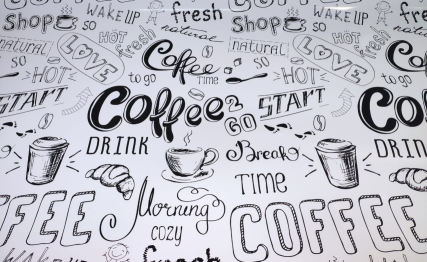 WAKE UP
fresh
WAKE UP
fre
Shop
SO
HOT
fresh
natural
Shop
SO
HOT
fresh
natural
LOVE
Coffee
TIME
natural
LOVE
SO
HOT
to go
SO
HOT
to go
START
Coffee
2 GO
START
Co
DRINK
Break
TIME
DRIN
FFEE
Morning
COZY
COFFEE
Wake up
fresh